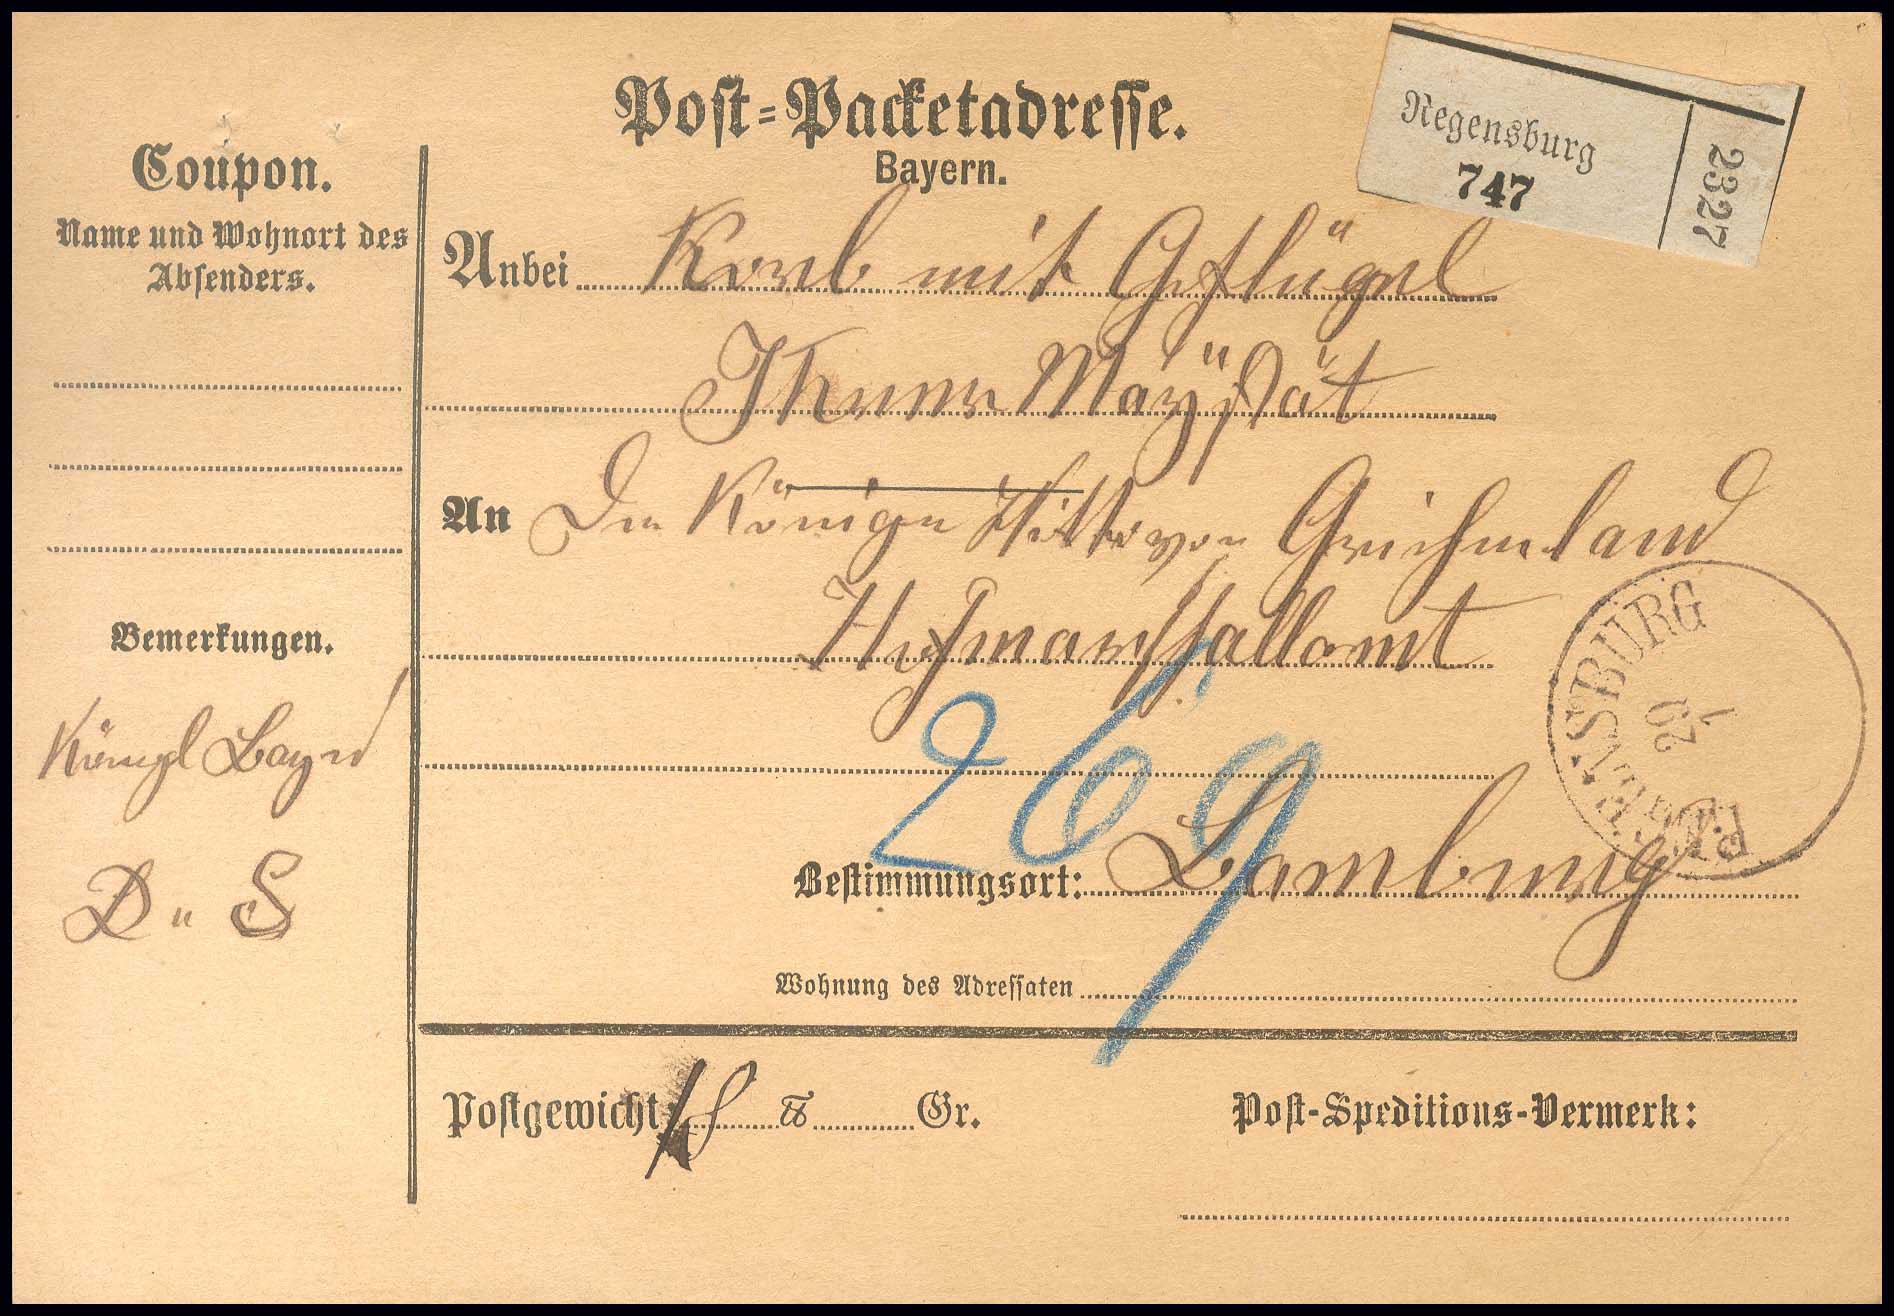 Post-Packetadresse.
Bayern.
Regensburg
747
2327
Coupon.
Name und Wohnort des
Absenders.
Anbei Korb mit Geflügel
Ihrer Mayestät
An Der Königin Otto von Griechenland
Hofmarschallamt
Bemerkungen.
Königl Bayr
D. S
REGENSBURG
20
1
269
Bestimmungsort: Bamberg
Wohnung des Adressaten
Postgewicht: 18 ℔ Gr.
Post-Speditions-Vermerk: